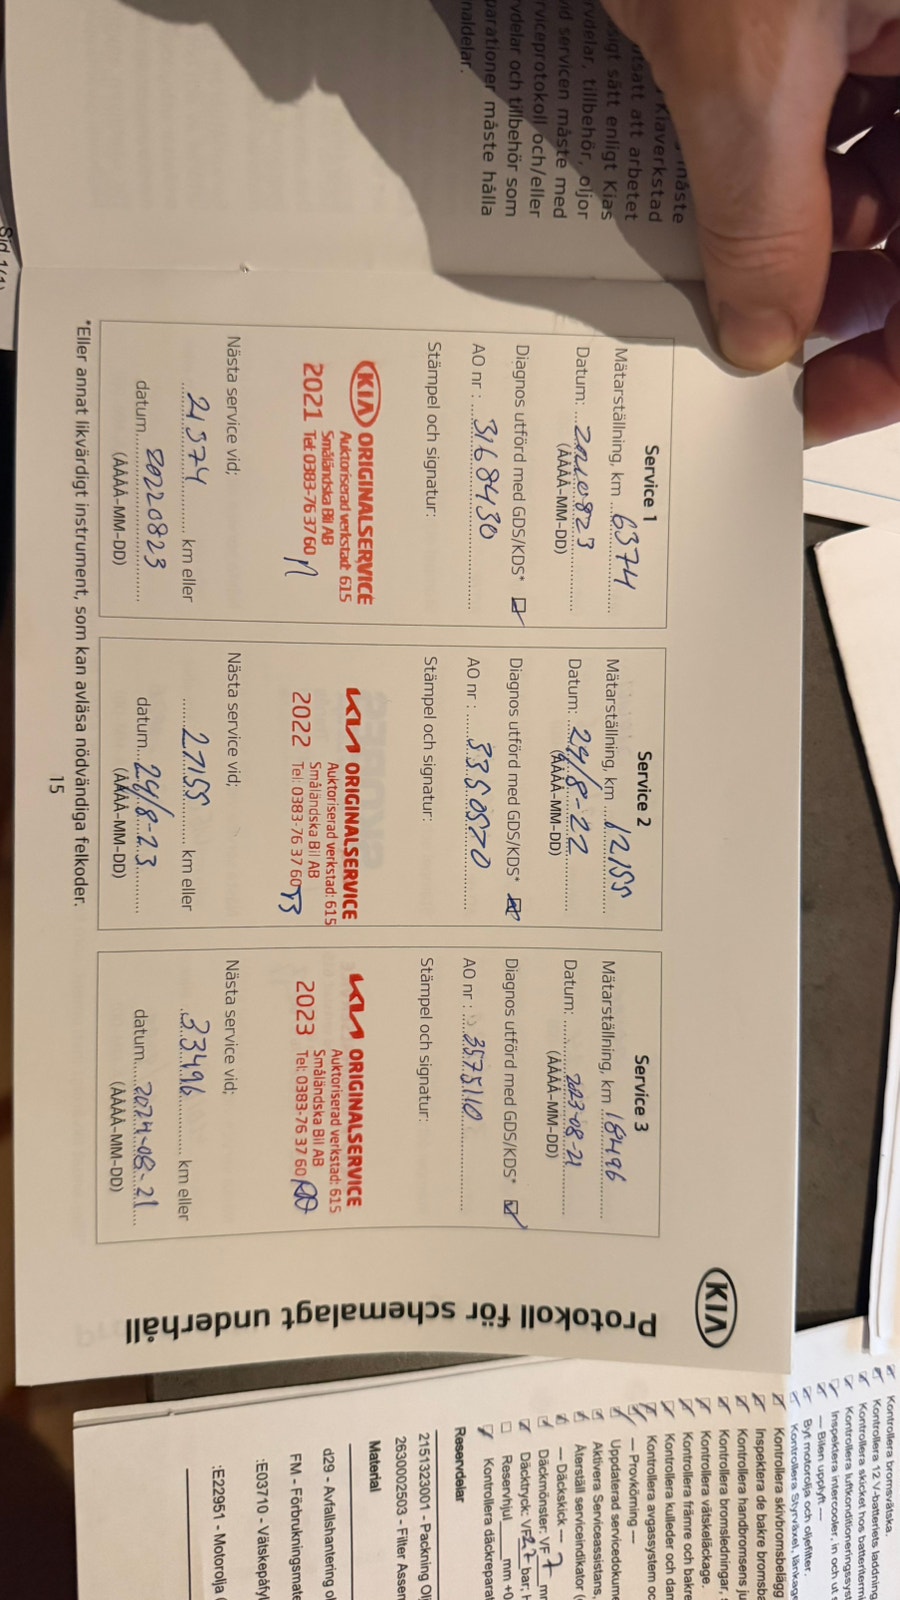 måste
Kiaverkstad
utsatt att arbetet
sätt enligt Kias
tillbehör, oljor
servicen måste med
serviceprotokoll och/eller
och tillbehör som
måste hålla
Sid 1(1)
KIA
Protokoll för schemalagt underhåll
Service 1
Mätarställning, km 6374
Datum: 20210823
(ÅÅÅÅ-MM-DD)
Diagnos utförd med GDS/KDS* ☑
AO nr : 3168430
Stämpel och signatur:
KIA ORIGINALSERVICE
Auktoriserad verkstad: 615
Småländska Bil AB
2021 Tel: 0383-76 37 60
Nästa service vid;
21374 km eller
datum 20220823
(ÅÅÅÅ-MM-DD)
Service 2
Mätarställning, km 12155
Datum: 24/8-22
(ÅÅÅÅ-MM-DD)
Diagnos utförd med GDS/KDS* ☑
AO nr : 3350570
Stämpel och signatur:
KIA ORIGINALSERVICE
Auktoriserad verkstad: 615
Småländska Bil AB
2022 Tel: 0383-76 37 60
Nästa service vid;
27155 km eller
datum 24/8-23
(ÅÅÅÅ-MM-DD)
Service 3
Mätarställning, km 18496
Datum: 2023-08-21
(ÅÅÅÅ-MM-DD)
Diagnos utförd med GDS/KDS* ☑
AO nr : 3575110
Stämpel och signatur:
KIA ORIGINALSERVICE
Auktoriserad verkstad: 615
Småländska Bil AB
2023 Tel: 0383-76 37 60
Nästa service vid;
33496 km eller
datum 2024-08-21
(ÅÅÅÅ-MM-DD)
*Eller annat likvärdigt instrument, som kan avläsa nödvändiga felkoder.
15
Kontrollera bromsvätska.
Kontrollera 12 V-batteriets laddning
Kontrollera skicket hos
Kontrollera
Inspektera intercooler, in och ut
— Bilen upplyft —
Byt motorolja och oljefilter.
Kontrollera Styrväxel,
Kontrollera skivbromsbelägg
Inspektera de bakre
Kontrollera handbromsens
Kontrollera bromsledningar,
Kontrollera vätskeläckage.
Kontrollera främre och bakre
Kontrollera kulleder och
Kontrollera avgassystem
— Provkörning —
Uppdaterad
Aktivera Serviceassistans,
Återställ serviceindikator
— Däckskick —
Däckmönster: VF 7
Däcktryck: VF 2,7 bar,
Reservhjul mm
Kontrollera
Reservdelar
2151323001 - Packning
263002503 - Filter
Material
d29 - Avfallshantering
FM -
:E03710 -
:E22951 - Motorolja